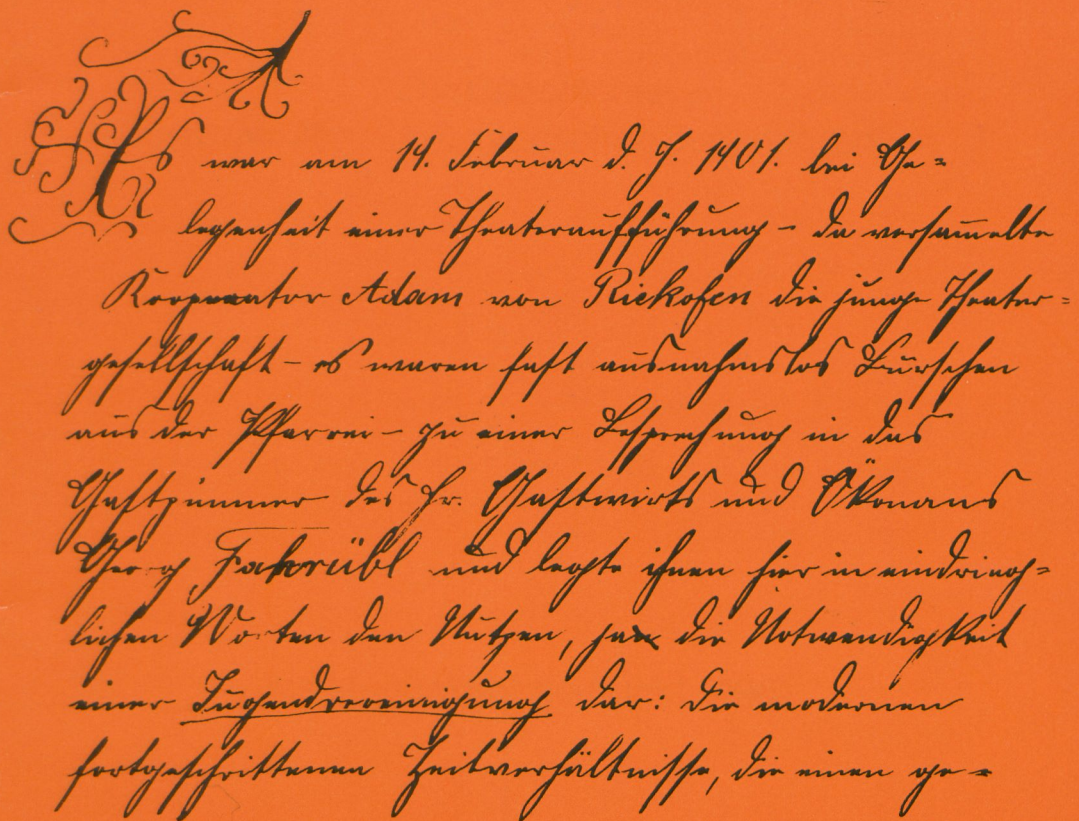 Es war am 19. Februar d. J. 1901. bei Ge=
legenheit einer Theateraufführung – da versam̅elte
Kooperator Adam von Riekofen die junge Theater=
gesellschaft – es waren fast ausnahmslos Burschen
aus der Pfarrei – zu einer Besprechung in das
Gastzimmer des Hr. Gastwirts und Ökonoms
Georg Fahrübl und legte ihnen hier in eindring=
lichen Worten den Nutzen, ja die Notwendigkeit
einer Jugendvereinigung dar: Die modernen
fortgeschrittenen Zeitverhältnisse, die einen ge=